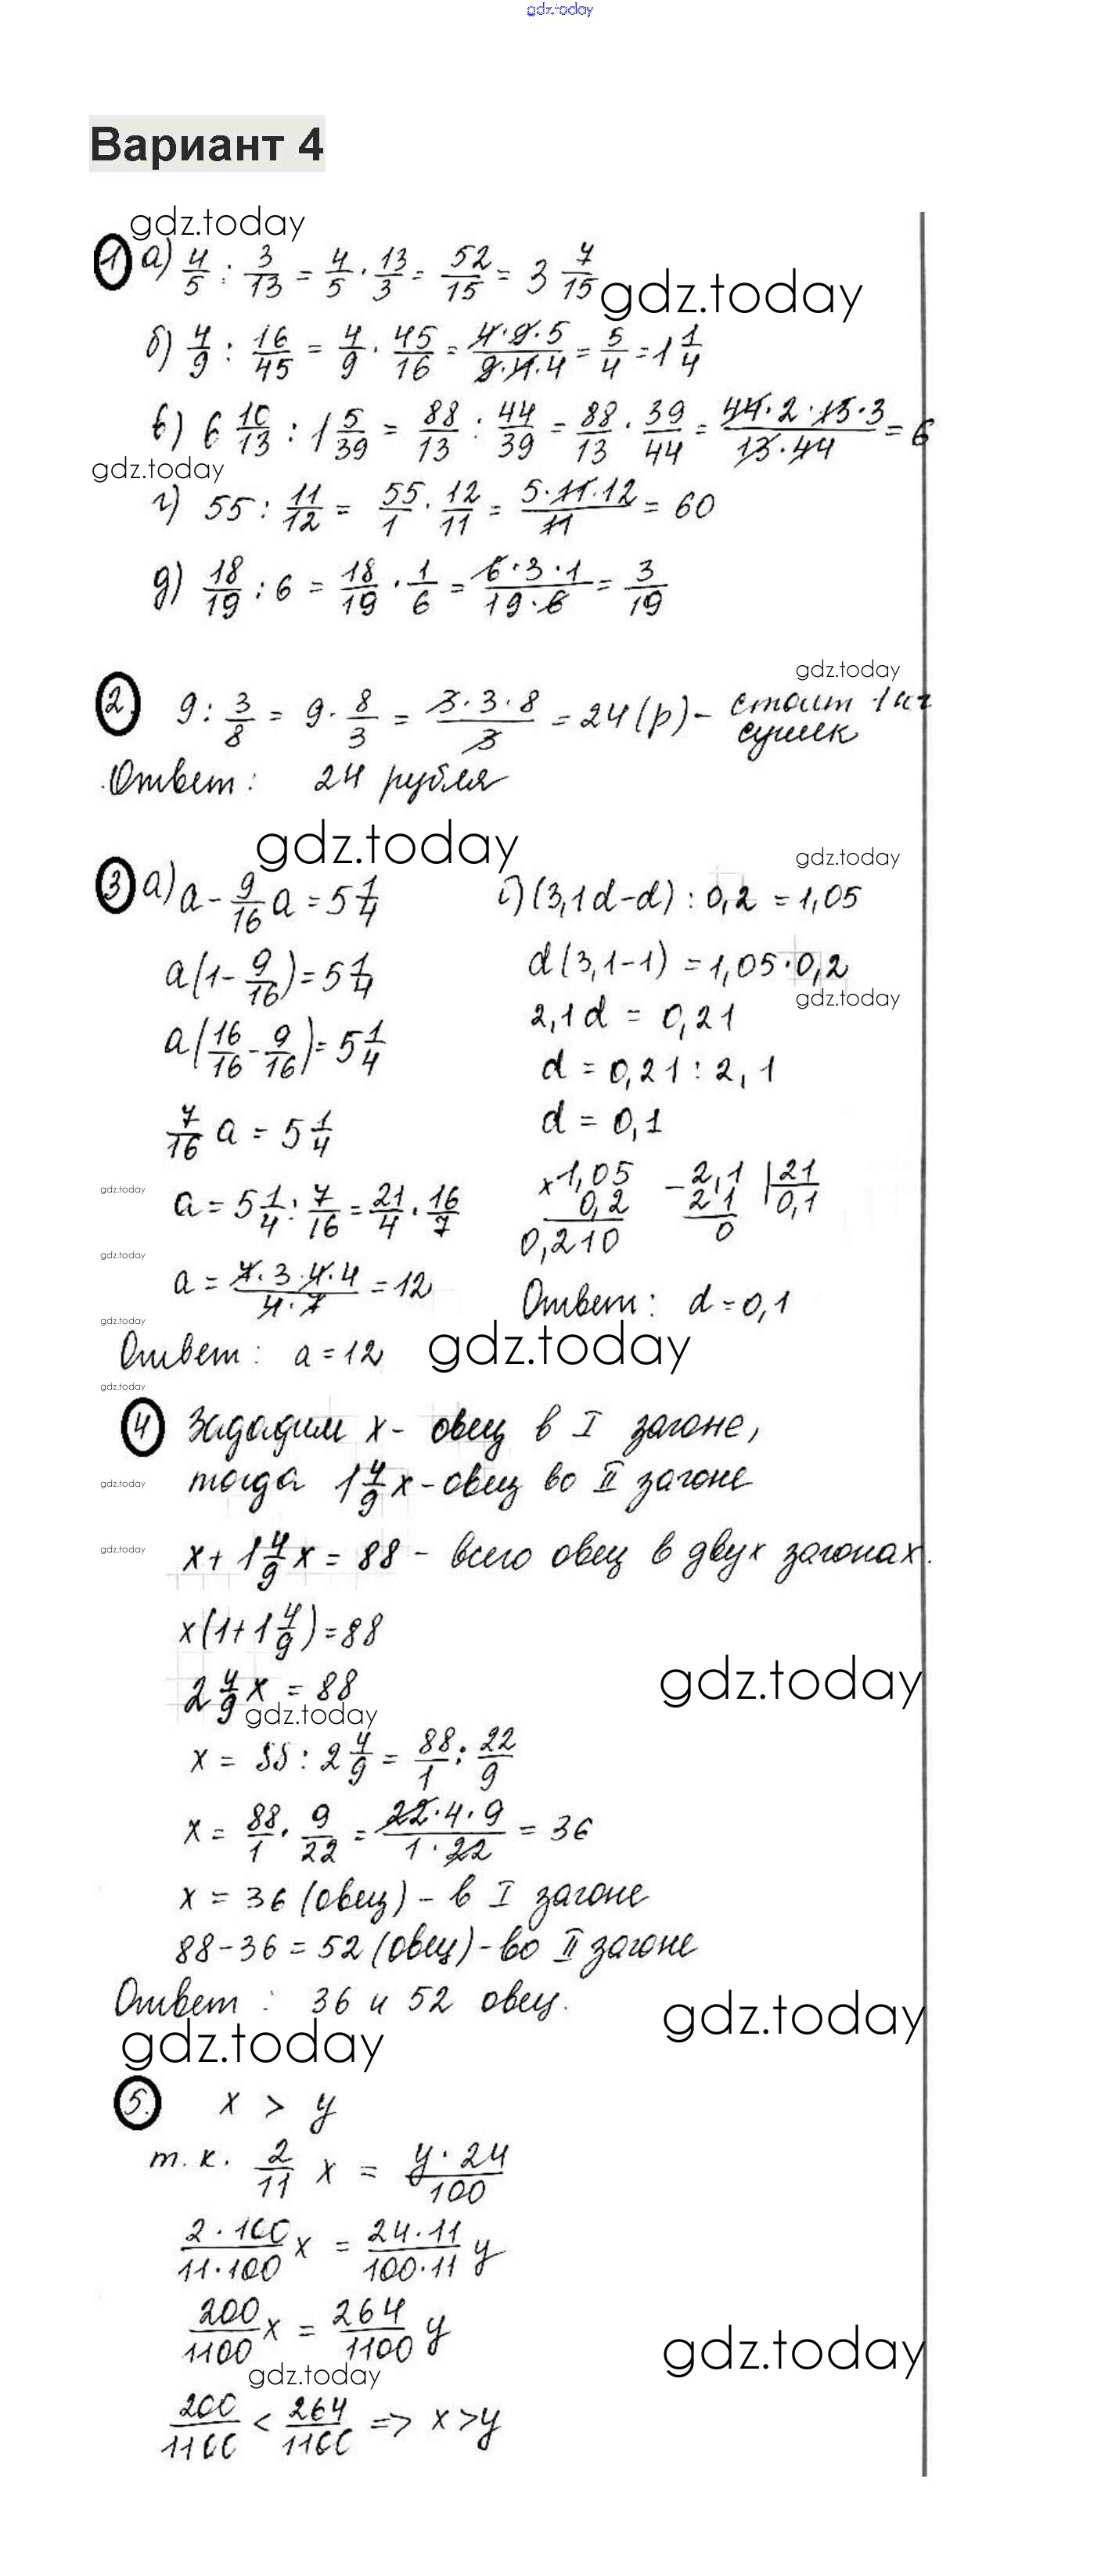 gdz.today
Вариант 4
gdz.today
1 а) 4/5 : 3/13 = 4/5 · 13/3 = 52/15 = 3 7/15
gdz.today
б) 4/9 : 16/45 = 4/9 · 45/16 = 4·9·5/9·4·4 = 5/4 = 1 1/4
в) 6 10/13 : 1 5/39 = 88/13 : 44/39 = 88/13 · 39/44 = 44·2·13·3/13·44 = 6
gdz.today
г) 55 : 11/12 = 55/1 · 12/11 = 5·11·12/11 = 60
д) 18/19 : 6 = 18/19 · 1/6 = 6·3·1/19·6 = 3/19
gdz.today
2. 9 : 3/8 = 9 · 8/3 = 3·3·8/3 = 24 (р) - стоит 1 кг
сушек
Ответ: 24 рубля
gdz.today
gdz.today
3 а) a - 9/16 a = 5 1/4
a(1 - 9/16) = 5 1/4
a(16/16 - 9/16) = 5 1/4
7/16 a = 5 1/4
gdz.today
a = 5 1/4 : 7/16 = 21/4 · 16/7
gdz.today
a = 7·3·4·4/4·7 = 12
gdz.today
Ответ: a = 12
б) (3,1d - d) : 0,2 = 1,05
d(3,1 - 1) = 1,05 · 0,2
gdz.today
2,1d = 0,21
d = 0,21 : 2,1
d = 0,1
×1,05 -2,1 |21
0,2 21 0,1
0,210 0
Ответ: d = 0,1
gdz.today
gdz.today
4 Зададим x - овец в I загоне,
тогда 1 4/9 x - овец во II загоне
gdz.today
x + 1 4/9 x = 88 - всего овец в двух загонах.
gdz.today
x(1 + 1 4/9) = 88
2 4/9 x = 88
gdz.today
gdz.today
x = 88 : 2 4/9 = 88/1 : 22/9
x = 88/1 · 9/22 = 22·4·9/1·22 = 36
x = 36 (овец) - в I загоне
88 - 36 = 52 (овец) - во II загоне
Ответ: 36 и 52 овец.
gdz.today
gdz.today
5. x > y
т.к. 2/11 x = y·24/100
2·100/11·100 x = 24·11/100·11 y
200/1100 x = 264/1100 y
gdz.today
gdz.today
200/1100 < 264/1100 => x > y